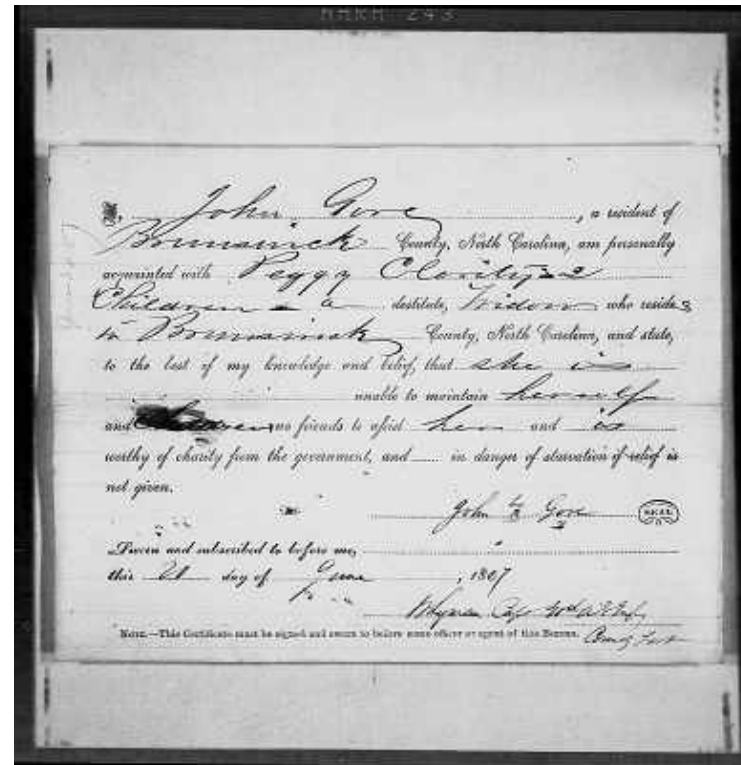 I, John Gore, a resident of
Brunswick County, North Carolina, am personally
acquainted with Peggy Clarity & 2
Children - a destitute, Widow who resides
in Brunswick County, North Carolina, and state,
to the best of my knowledge and belief, that she is
unable to maintain herself
and Children no friends to assist her and is
worthy of charity from the government, and in danger of starvation if relief is
not given.
John Gore SEAL
Sworn and subscribed to before me,
this 21 day of June, 1867
Capt
NOTE.—This Certificate must be signed and sworn to before some officer or agent of this Bureau.